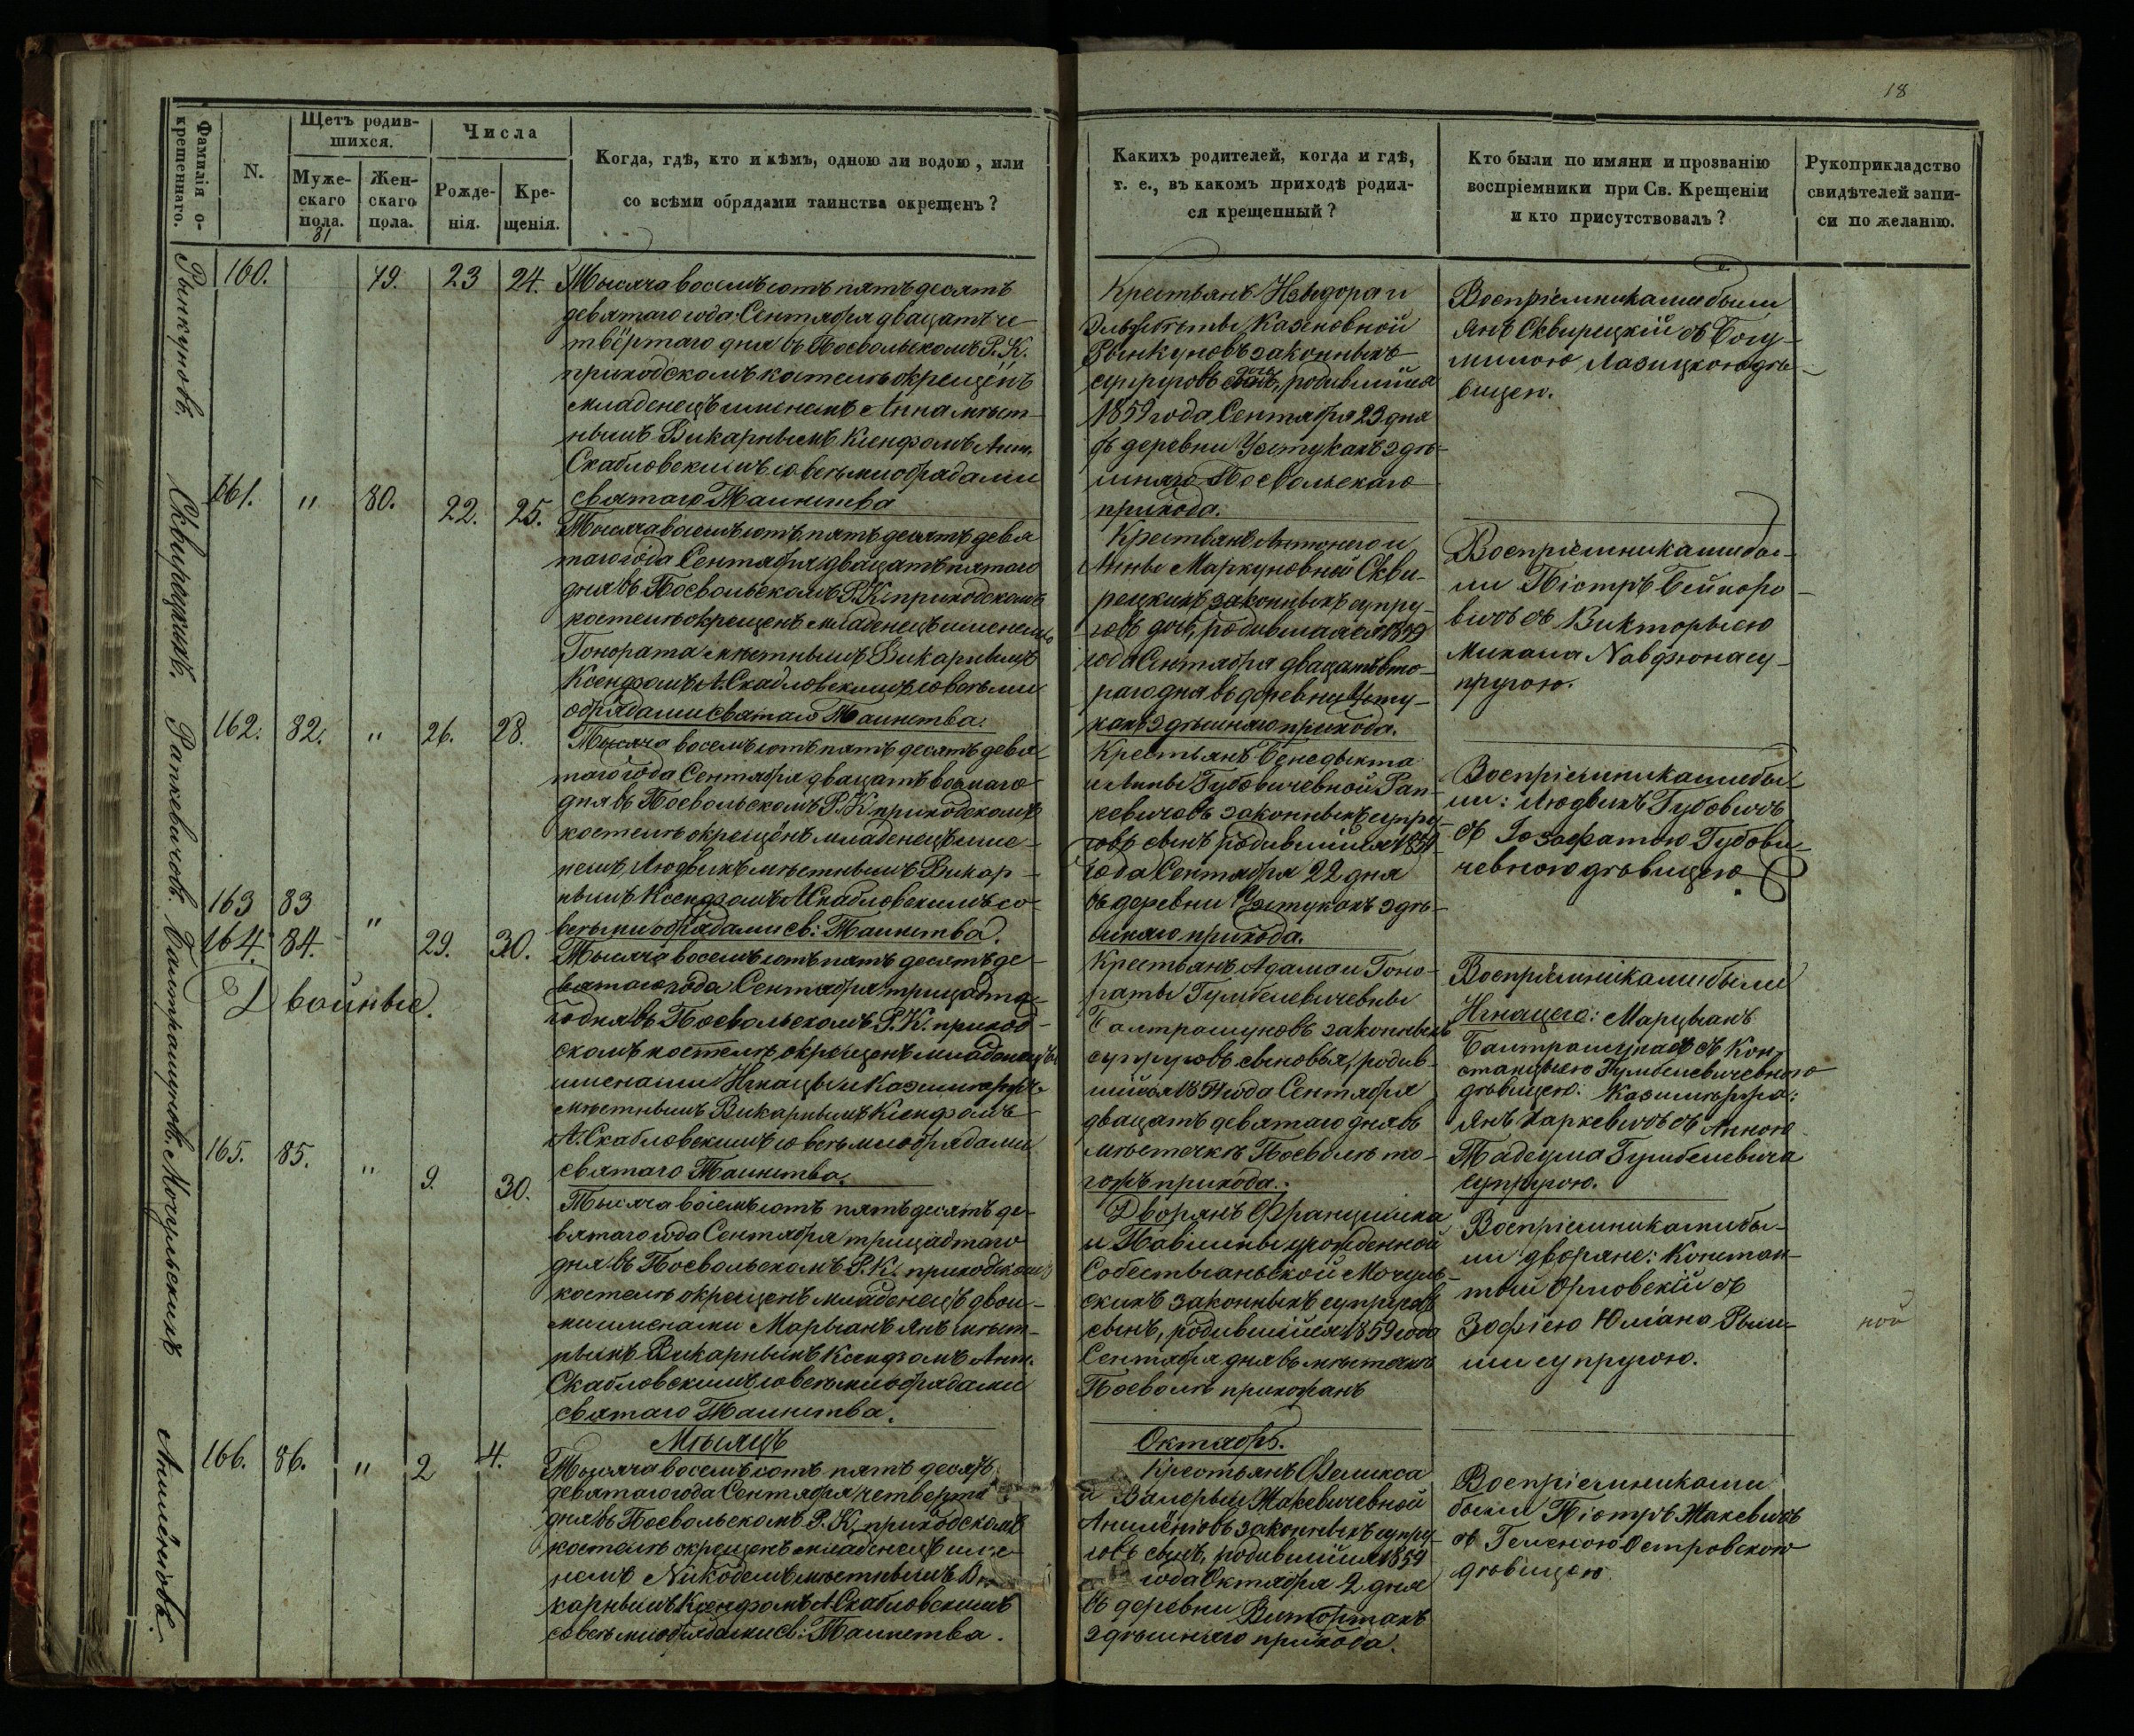 18
Фамилія о-
крещеннаго.
N.
Щетъ родив-
шихся.
Муже-
скаго
пола.
Жен-
скаго
пола.
Числа
Рожде-
нія.
Кре-
щенія.
Когда, гдѣ, кто и кѣмъ, одною ли водою, или
со всѣми обрядами таинства окрещенъ?
Какихъ родителей, когда и гдѣ,
т. е., въ какомъ приходѣ родил-
ся крещенный?
Кто были по имяни и прозванію
воспріемники при Св. Крещеніи
и кто присутствовалъ?
Рукоприкладство
свидѣтелей запи-
си по желанію.
81
Рынкуновъ.
160.
79.
23
24.
Тысяча восемъсотъ пятъдесятъ
девятаго года Сентября двацатъ че-
твёртаго дня въ Посвольскомъ Р. К.
приходскомъ костелѣ окрещёнъ
младенецъ именемъ Анна мѣст-
нымъ Викарнымъ Ксендзомъ Ант.
Скабловскимъ со всѣми обрядами
святаго Таинства
Крестьянъ Изыдора и
Эльжбѣты Казеновной
Рынкуновъ законныхъ
супруговъ дочь, родившійся
1859 года Сентября 23 дня
въ деревни Устукахъ здѣ-
шняго Посвольскаго
прихода.
Воспріемниками были
Янъ Сквирецкій съ Богу-
милою Лазицкою дѣ-
вицею.
Сквирецкихъ.
161.
"
80.
22.
25.
Тысяча восемъсотъ пятъдесятъ девя
таго года Сентября двацатъ пятаго
дня въ Посвольскомъ Р. К. приходскомъ
костелѣ окрещенъ младенецъ именемъ
Гонората мѣстнымъ Викарнымъ
Ксендзомъ А. Скабловскимъ со всѣми
обрядами святаго Таинства.
Крестьянъ Антонего и
Анны Маркуновной Скви-
рецкихъ законныхъ супру-
говъ дочь, родившаяся 1859
года Сентября двацатъ вто-
раго дня въ деревни Усту-
кахъ здѣшняго прихода.
Воспріемниками бы-
ли Піотръ Бейноро-
вичъ съ Викторыею
Михала Навдзюна су-
пругою.
Рапкевичовъ.
162.
82.
"
26.
28.
Тысяча восемъсотъ пятъдесятъ девя-
таго года Сентября двацатъ восмаго
дня въ Посвольскомъ Р. К. приходскомъ
костелѣ окрещёнъ младенецъ име-
немъ Людвикъ мѣстнымъ Викар-
нымъ Ксендзомъ А. Скабловскимъ со
всѣми обрядами св: Таинства.
Крестьянъ Бенедыкта
и Анны Губовичевной Рап-
кевичовъ законныхъ супру-
говъ сынъ родившійся 1859
года Сентября 22 дня
въ деревни Устукахъ здѣ-
шняго прихода.
Воспріемниками бы-
ли: Людвикъ Губовичъ
съ Іозафатою Губови-
чевною дѣвицею
Балтрашуновъ.
163
83
"
164.
84.
29.
30.
Двойные.
Тысяча восемъсотъ пятъдесятъ де-
вятаго года Сентября трицадта-
го дня въ Посвольскомъ Р. К. приход-
скомъ костелѣ окрещенъ младенецъ
именами Игнацы и Казимержъ
мѣстнымъ Викарнымъ Ксендзомъ
А. Скабловскимъ со всѣми обрядами
святаго Таинства.
Крестьянъ Адама и Гоно-
раты Гумбелевичевны
Балтрашуновъ законныхъ
супруговъ сыновья, родив-
шійся 1859 года Сентября
двацатъ девятаго дня въ
мѣстечкѣ Посволѣ то-
гожъ прихода.
Воспріемниками были
Игнацего: Марцыанъ
Балтрашунасъ съ Кон-
станцыею Гумбелевичевною
дѣвицею: Казимержа:
Янъ Каркевичъ съ Анною
Тадеуша Гумбелевича
супругою.
Мочульскихъ
165.
85.
"
9.
30.
Тысяча восемъсотъ пятъдесятъ де-
вятаго года Сентября трицадтаго
дня въ Посвольскомъ Р. К. приходскомъ
костелѣ окрещенъ младенецъ двои-
ми именами Марыанъ Янъ мѣст-
нымъ Викарнымъ Ксендзомъ Ант.
Скабловскимъ со всѣми обрядами
святаго Таинства.
Дворянъ Францишка
и Павлины урожденной
Собестыаньской Мочуль-
скихъ законныхъ супруговъ
сынъ, родившійся 1859 года
Сентября дня въ мѣстечкѣ
Посволѣ прихожанъ
Воспріемниками бы-
ли дворяне: Констан-
тый Орловскій съ
Зофіею Юліана
супругою.
ной
Мѣсяцъ
Октябрь.
Анилёнісовъ.
166.
86.
"
2
4.
Тысяча восемъсотъ пятъ десятъ
девятаго года Сентября четверта
дня въ Посвольскомъ Р. К. приходскомъ
костелѣ окрещенъ младенецъ име-
немъ Никодемъ мѣстнымъ Ви
карнымъ Ксендзомъ А. Скабловскимъ
со всѣми обрядами св: Таинства.
Крестьянъ Феликса
и Валерыи Жакевичевной
Анилёнісовъ законныхъ супру-
говъ сынъ, родившійся 1859
года Октября 2 дня
въ деревни
здѣшняго прихода.
Воспріемниками
были Піотръ Жакевичъ
съ Геленою Островскою
дѣвицею.